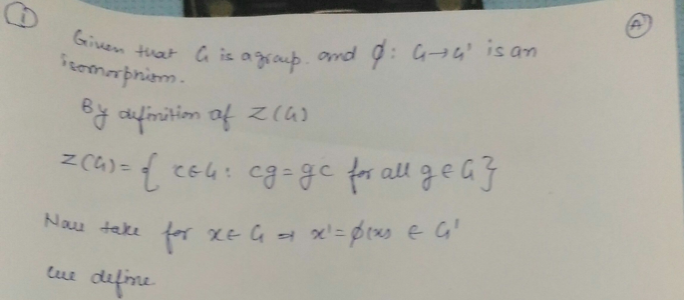 ① Ⓐ
Given that G is a group. and ϕ: G→G' is an
isomorphism.
By definition of Z(G)
Z(G)= { c∈G: cg=gc for all g∈G}
Now take for x∈G ⇒ x'=ϕ(x) ∈ G'
we define.